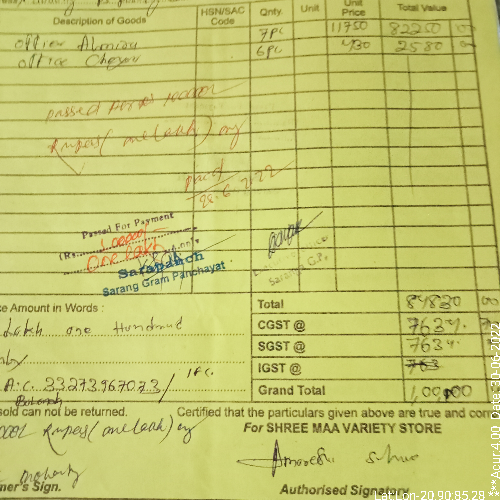 Description of Goods HSN/SAC Code Qnty. Unit Unit Price Total Value
office Almirau 7pc 11750 82250 00
office Chayar 6pc 430 2580 00
passed
Rupees (one lakh) only
paid
28.6.2022
Passed For Payment
(Rs. 100000
one lakh
Sarapanch
Sarang Gram Panchayat
Sarang G.P.
Amount in Words :
Lakh one Hundraud
Total 84830 00
CGST @ 763
SGST @ 763
IGST @ 763
A.C. 33273967073/ IFC.
Grand Total 1,00,000
sold can not be returned. Certified that the particulars given above are true and corr
Rupees (one lakh) only
For SHREE MAA VARIETY STORE
mer's Sign. Authorised Signatory
***Acur:4.00 Date:30-06-2022
Lat Lon-20.90:85.28